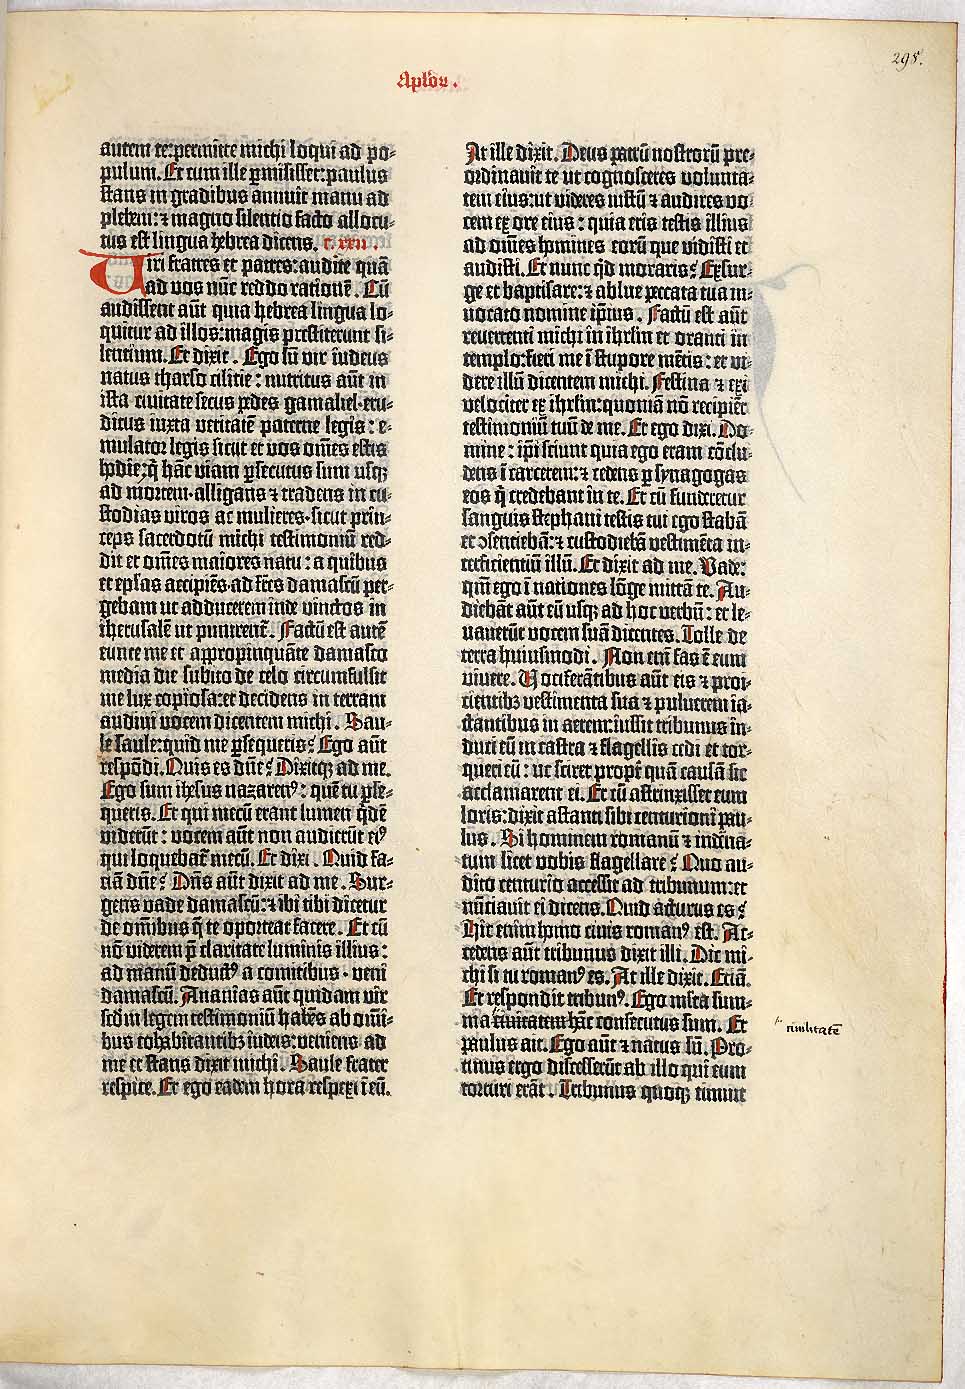 295.
Aplõꝝ.
autem te: permitte michi loqui ad po-
pulum. Et cum ille ꝑmisisset: paulus
stans in gradibus annuit manu ad
plebem: ⁊ magno silentio facto allocu-
tus est lingua hebrea dicens. c. xxii.
Uiri fratres et patres: audite quā
ad vos nūc reddo rationē. Cū
audissent aūt quia hebrea lingua lo-
quitur ad illos: magis prestiterunt si-
lentium. Et dixit. Ego sū vir iudeus
natus tharso cilitie: nutritus aūt in
ista civitate secus pedes gamaliel·eru-
ditus iuxta veritatē paterne legis: e-
mulator legis sicut et vos om̄es estis
hodie: q̄ hāc viam ꝑsecutus sum usqꝫ
ad mortem·alligans ⁊ tradens in cu-
stodias viros ac mulieres·sicut prin-
ceps sacerdotū michi testimoniū red-
dit et om̄es maiores natu: a quibus
et eplas accipiēs·ad fr̄es damascū per-
gebam ut adducerem inde vinctos in
iherusalē ut punirent̄. Factū est autē
eunte me et appropinquāte damasco
media die subito de celo circumfulsit
me lux copiosa: et decidens in terram
audivi vocem dicentem michi. Sau-
le saule: quid me ꝑsequeris? Ego aūt
respōdi. Quis es dn̄e? Dixitqꝫ ad me.
Ego sum ihesus nazarenꝰ: quē tu ꝑse-
queris. Et qui mecū erant lumen q̄dē
viderūt: vocem aūt non audierūt eiꝰ
qui loquebat̄ mecū. Et dixi. Quid fa-
ciā dn̄e? Dn̄s aūt dixit ad me. Sur-
gens vade damascū: ⁊ ibi tibi dicetur
de om̄ibus q̄ te oporteat facere. Et cū
nō viderem p̄ claritate luminis illius:
ad manū deductꝰ a comitibus·veni
damascū. Ananias aūt quidam vir
scd̄m legem testimoniū habēs ab om̄i-
bus cohabitantibꝫ iudeis: veniens ad
me et stans dixit michi. Saule frater
respice. Et ego eadem hora respexi ī eū.
At ille dixit. Deus patrū nostrorū pre-
ordinavit te ut cognosceres volunta-
tem eius: ut videres iustū ⁊ audires vo-
cem ex ore eius: quia eris testis illius
ad om̄es homines eorū que vidisti et
audisti. Et nunc qd̄ moraris? Exsur-
ge et baptisare: ⁊ ablue peccata tua in-
vocato nomine ip̄ius. Factū est aūt
revertenti michi in ihrlm̄ et oranti in
templo: fieri me ī stupore mētis: et vi-
dere illū dicentem michi. Festina ⁊ exi
velociter ex ihrlm̄: quoniā nō recipiēt
testimoniū tuū de me. Et ego dixi. Do-
mine: ip̄i sciunt quia ego eram cōclu-
dens ī carcerem: ⁊ cedens ꝑ synagogas
eos q̄ credebant in te. Et cū funderetur
sanguis stephani testis tui ego stabā
et ↄsentiebā: ⁊ custodiebā vestimēta in-
terficientiū illū. Et dixit ad me. Vade:
qm̄ ego ī nationes lōge mittā te. Au-
diebāt aūt eū usqꝫ ad hoc verbū: et le-
vaverūt vocem suā dicentes. Tolle de
terra huiusmodi. Non em̄ fas ē eum
vivere. Vociferātibus aūt eis ⁊ proi-
cientibꝫ vestimenta sua ⁊ pulverem ia-
ctantibus in aerem: iussit tribunus in-
duci eū in castra ⁊ flagellis cedi et tor-
queri eū: ut sciret propt̄ quā causā sic
acclamarent ei. Et cū astrinxissēt eum
loris: dixit astanti sibi centurioni pau-
lus. Si hominem romanū ⁊ indēna-
tum licet vobis flagellare? Quo au-
dito centurio accessit ad tribunum: et
nūciavit ei dicens. Quid acturus es?
Hic enim homo civis romanꝰ est. Ac-
cedens aūt tribunus dixit illi. Dic mi-
chi si tu romanꝰ es. At ille dixit. Etiā.
Et respondit tribunꝰ. Ego multa sum-
ma civitatem hāc consecutus sum. Et
civilitatē
paulus ait. Ego aūt ⁊ natus sū. Pro-
tinus ergo discesserūt ab illo qui eum
torturi erāt. Tribunus quoqꝫ timuit